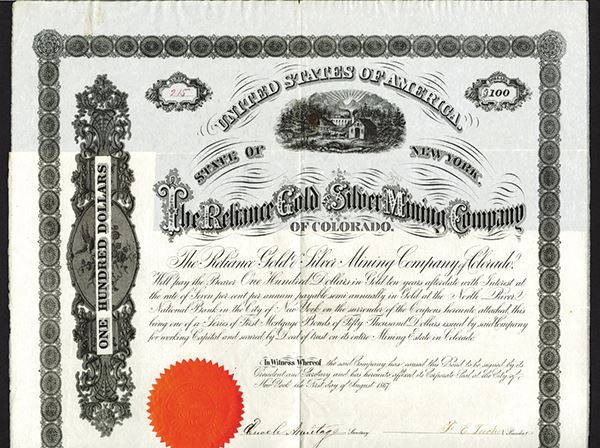 215
$100
UNITED STATES OF AMERICA.
STATE OF NEW YORK.
The Reliance Gold & Silver Mining Company
OF COLORADO.
ONE HUNDRED DOLLARS
The Reliance Gold & Silver Mining Company of Colorado,
Will pay the Bearer One Hundred Dollars in Gold ten years after date with Interest at
the rate of Seven per cent per annum payable semi annually in Gold at the North River
National Bank in the City of New York on the surrender of the Coupons hereunto attached, this
being one of a Series of First Mortgage Bonds of Fifty Thousand Dollars issued by said company
for working Capital and secured by Deed of trust on its entire Mining Estate in Colorado
In Witness Whereof the said Company has caused this Bond to be signed by its
President and Secretary and has hereunto affixed its Corporate Seal at the City of
New York the First day of August 1867
Enoch Armitage Secretary President